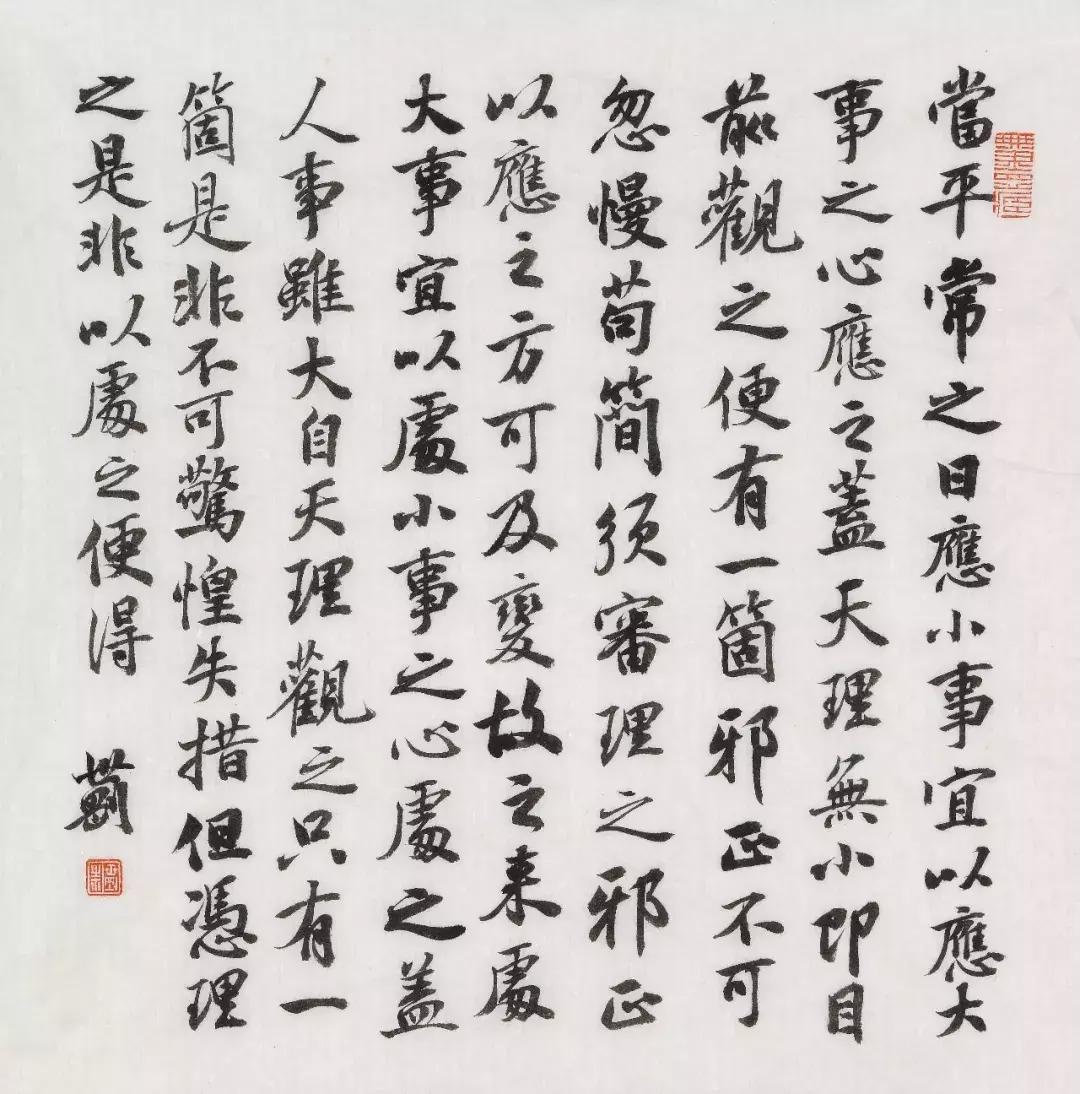 當平常之日應小事宜以應大
事之心應之蓋天理無小即目
前觀之便有一箇邪正不可
忽慢苟簡須審理之邪正
以應之方可及變故之来處
大事宜以處小事之心處之盖
人事雖大自天理觀之只有一
箇是非不可驚惶失措但憑理
之是非以處之便得